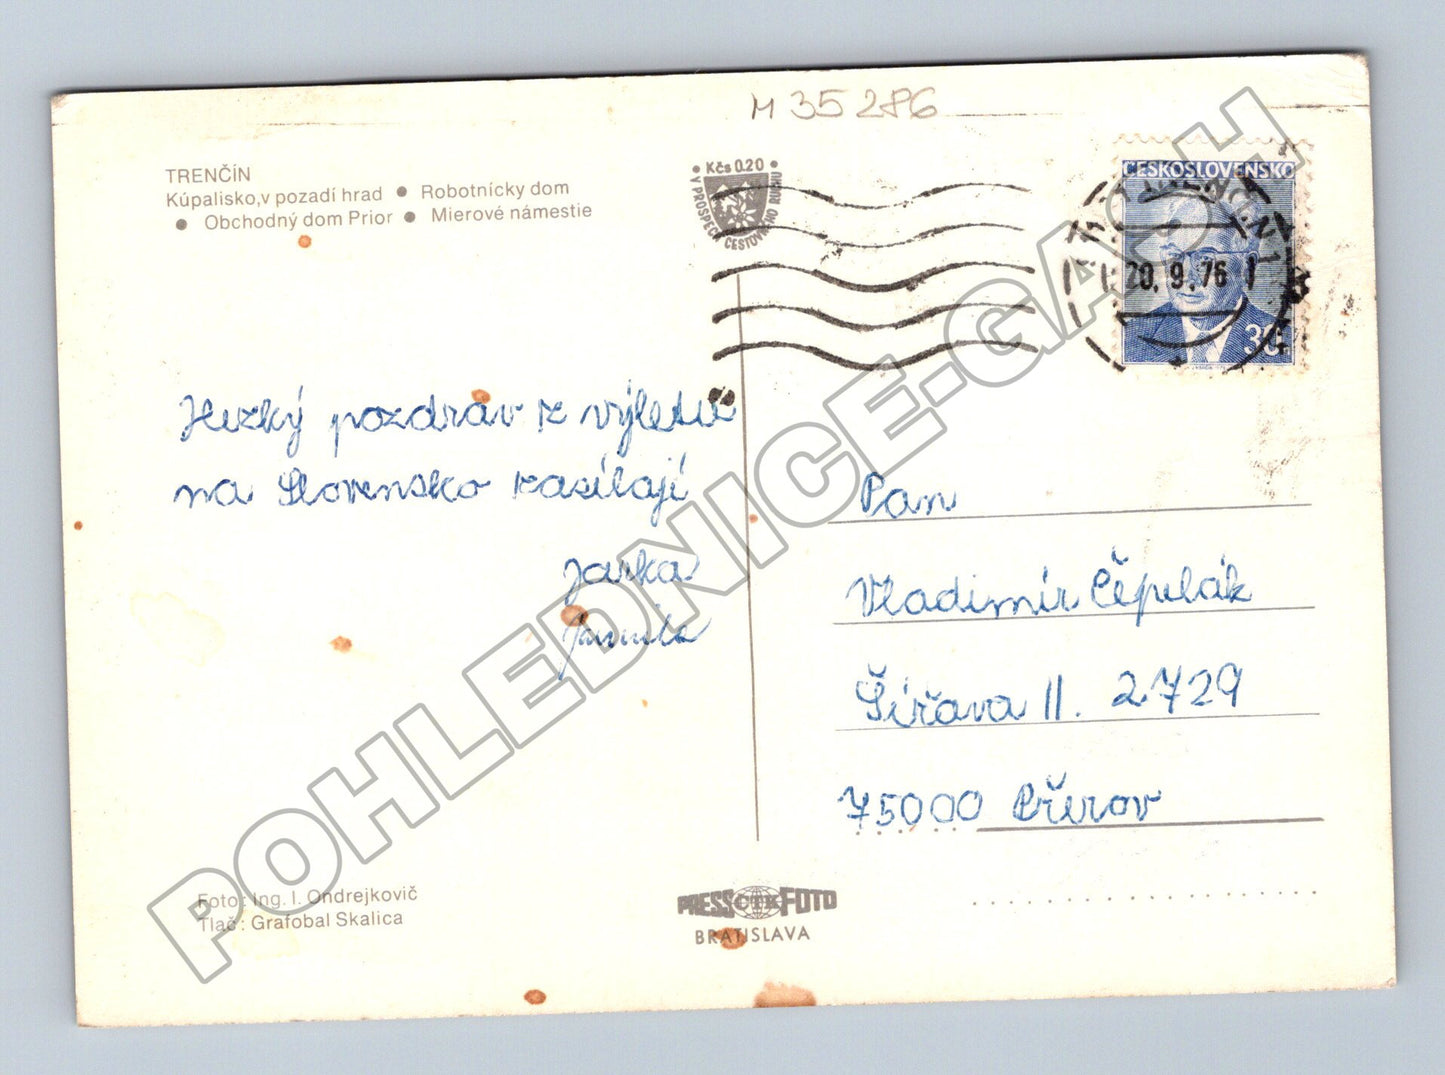 M 35 286
TRENČÍN
Kúpalisko, v pozadí hrad ● Robotnícky dom
● Obchodný dom Prior ● Mierové námestie
• Kčs 0.20 •
V PROSPECH CESTOVNÉHO RUCHU
ČESKOSLOVENSKO
TRENČÍN 1
20. 9. 76
30
Hezký pozdrav z výletu
na Slovensko zasílají
Jarka
Jarmila
Pan
Vladimír Čépelák
Šířava II. 2729
75000 Přerov
Foto: Ing. I. Ondrejkovič
Tlač: Grafobal Skalica
PRESS ČTK FOTO
BRATISLAVA
POHLEDNICE-GACH